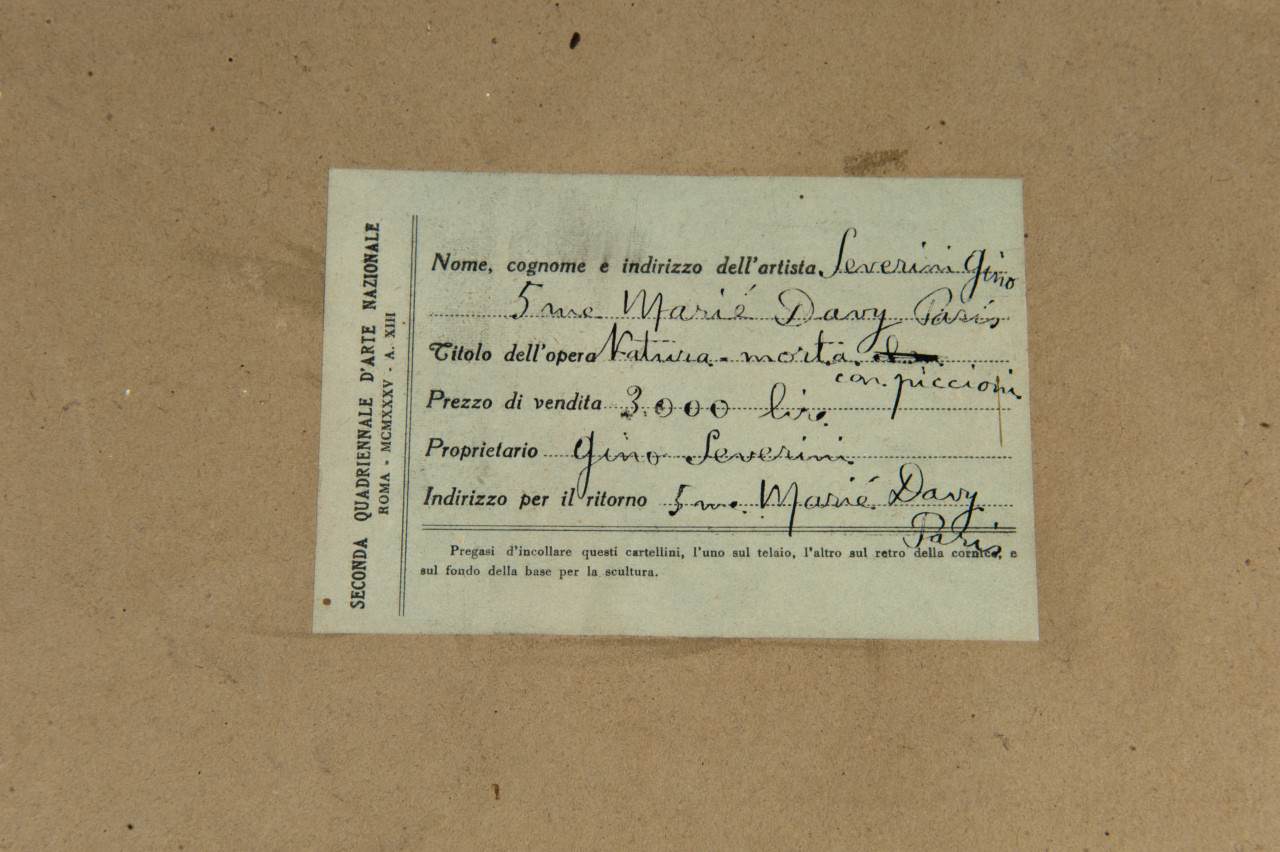 SECONDA QUADRIENNALE D'ARTE NAZIONALE
ROMA - MCMXXXV - A. XIII
Nome, cognome e indirizzo dell'artista Severini Gino
5 rue Marié Davy Paris
Titolo dell'opera Natura-morta
con piccioni
Prezzo di vendita 3.000 lire
Proprietario Gino Severini
Indirizzo per il ritorno 5 rue Marié Davy
Paris
Pregasi d'incollare questi cartellini, l'uno sul telaio, l'altro sul retro della cornice, e
sul fondo della base per la scultura.